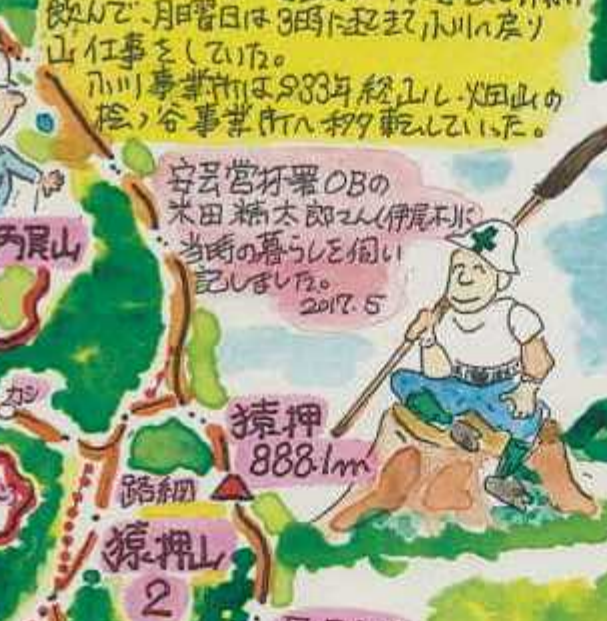 飲んで、月曜日は3時に起きて、小川へ戻り
山仕事をしていた。
小川事業所はS33年
桧ノ谷事業所へ移転していった。
安芸営林署OBの
米田精太郎さん(伊尾木)に
当時の暮らしを伺い
記しました。
2017.5
カシ
猿押
888.1m
路網
猿押山
2